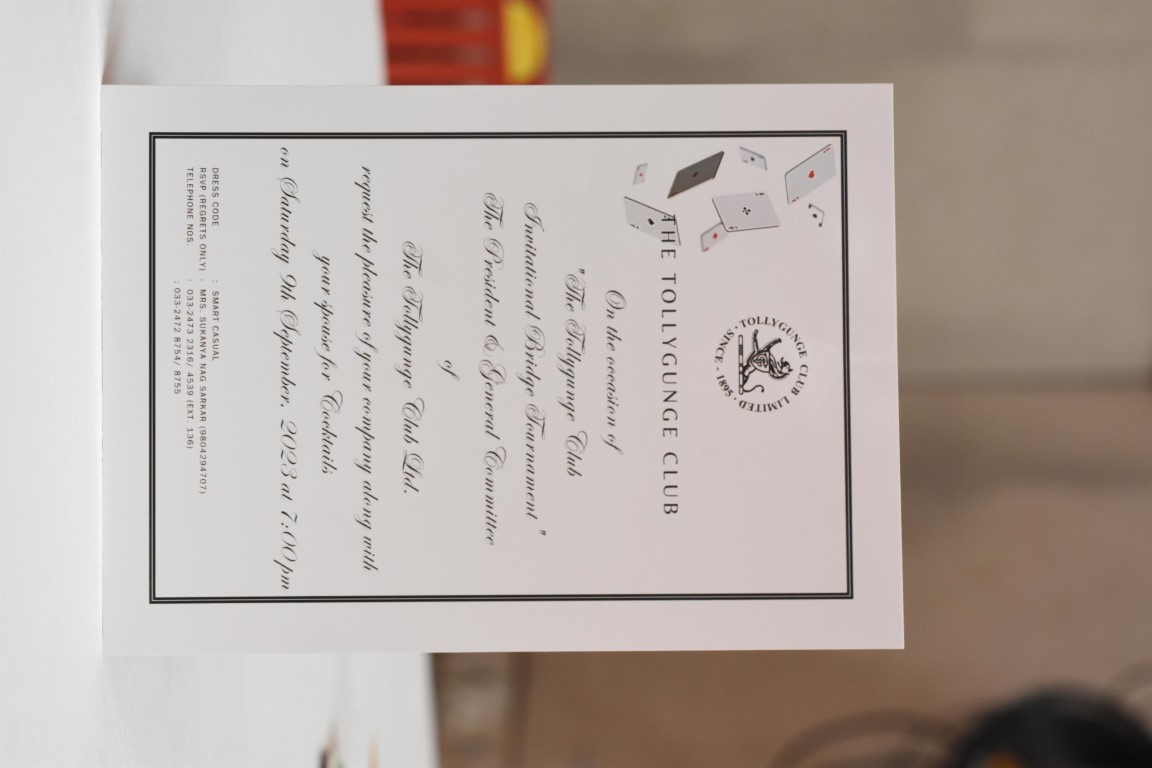 TOLLYGUNGE CLUB LIMITED · SINCE - 1895 ·
THE TOLLYGUNGE CLUB
On the occasion of
"The Tollygunge Club
Invitational Bridge Tournament "
The President & General Committee
of
The Tollygunge Club Ltd.
request the pleasure of your company along with
your spouse for Cocktails
on Saturday 9th September, 2023 at 7:00 pm
DRESS CODE : SMART CASUAL
RSVP (REGRETS ONLY) : MRS. SUKANYA NAG SARKAR (9804294707)
TELEPHONE NOS. : 033-2473 2316/ 4539 (EXT. 136)
: 033-2472 8754/ 8755